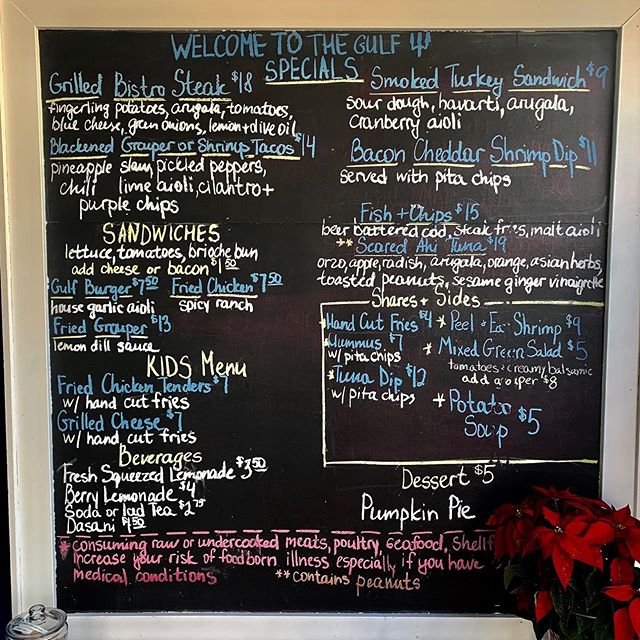 WELCOME TO THE GULF
SPECIALS
Grilled Bistro Steak $18
fingerling potatoes, arugala, tomatoes,
blue cheese, green onions, lemon + olive oil
Blackened Grouper or Shrimp Tacos $14
pineapple slaw, pickled peppers,
chili lime aioli, cilantro +
purple chips
Smoked Turkey Sandwich $9
sour dough, havarti, arugala,
cranberry aioli
Bacon Cheddar Shrimp Dip $11
served with pita chips
Fish + Chips $15
beer battered cod, steak fries, malt aioli
** Seared Ahi Tuna $19
orzo, apple, radish, arugala, orange, asian herbs,
toasted peanuts, sesame ginger vinaigrette
SANDWICHES
lettuce, tomatoes, brioche bun
add cheese or bacon $1.50
Gulf Burger $7.50 Fried Chicken $7.50
house garlic aioli spicy ranch
Fried Grouper $13
lemon dill sauce
KIDS Menu
Fried Chicken Tenders $7
w/ hand cut fries
Grilled Cheese $7
w/ hand cut fries
Beverages
Fresh Squeezed Lemonade $3.50
Berry Lemonade $4
Soda or Iced Tea $2.75
Dasani $1.50
Shares + Sides
* Hand Cut Fries $4
* Hummus $7
w/ pita chips
* Tuna Dip $12
w/ pita chips
* Peel & Eat Shrimp $9
* Mixed Green Salad $5
tomatoes + creamy balsamic
add grouper $8
* Potatoe Soup $5
Dessert $5
Pumpkin Pie
* consuming raw or undercooked meats, poultry, seafood, shellf
increase your risk of foodborn illness especially if you have
medical conditions ** contains peanuts